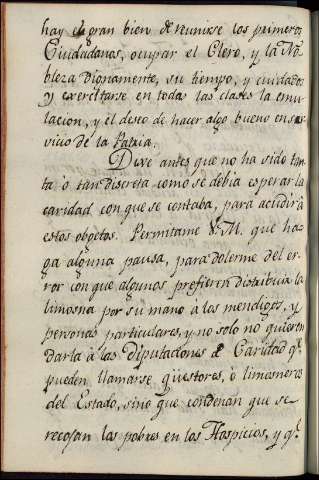 hay el gran bien de reunirse los primeros
Ciudadanos, ocupar el Clero, y la No-
bleza dignamente, su tiempo, y cuidados
y exercitarse en todas las clases la emu-
lacion, y el deseo de hacer algo bueno en ser-
vicio de la Patria.
Dixe antes que no ha sido tan-
ta ò tan discreta como se debia esperar la
caridad con que se contaba, para acudir à
estos obgetos. Permitame V.M. que ha-
ga alguna pausa, para dolerme del er-
ror con que algunos prefieren distribuir la
limosna por su mano à los mendigos, y
personas particulares, y no solo no quieren
darla à las Diputaciones de Caridad q.e
pueden llamarse qüestores, ò limosneros
del Estado, sino que condenan que se
recojan los pobres en los Hospicios, y q.e